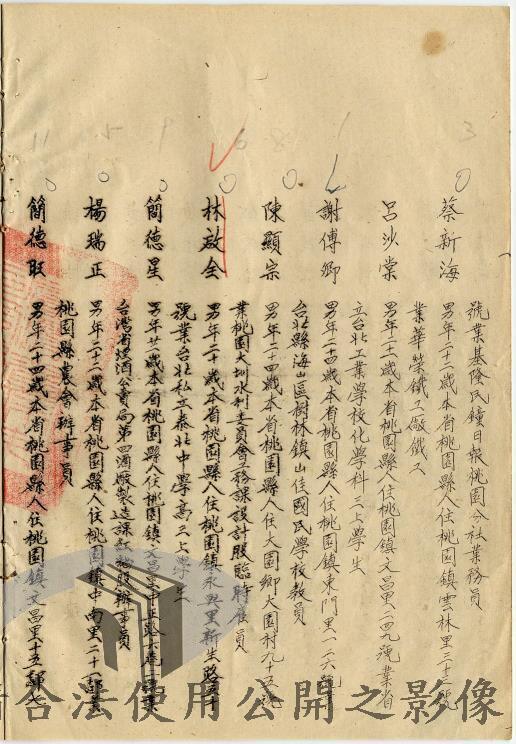 號業基隆民鐘日報桃園分社業務員
蔡新海 男年二十二歲本省桃園縣人住桃園鎮雲林里三十三號
業華榮鐵工廠鐵工
呂沙棠 男年二十一歲本省桃園縣人住桃園鎮文昌里二四九號業省
立台北工業學校化學科三上學生
謝傳鄉 男年二十四歲本省桃園縣人住桃園鎮東門里八一二六號
台北縣海山區樹林鎮山佳國民學校教員
陳顯宗 男年二十四歲本省桃園縣人住大園鄉大園村九十五號
業桃園大圳水利委員會工務課設計股臨時雇員
林啟全 男年二十歲本省桃園縣人住桃園鎮永興里新生路五十
號業台北私立泰北中學高三上學生
簡德星 男年廿歲本省桃園縣人住桃園鎮文昌里中正路六巷
台灣省煙酒公賣局第四酒廠製造課紅酒股辦事員
楊瑞正 男年二十二歲本省桃園縣人住桃園鎮中南里二十一鄰業
桃園縣農會辦事員
簡德取 男年二十四歲本省桃園縣人住桃園鎮文昌里十五鄰
合法使用公開之影像